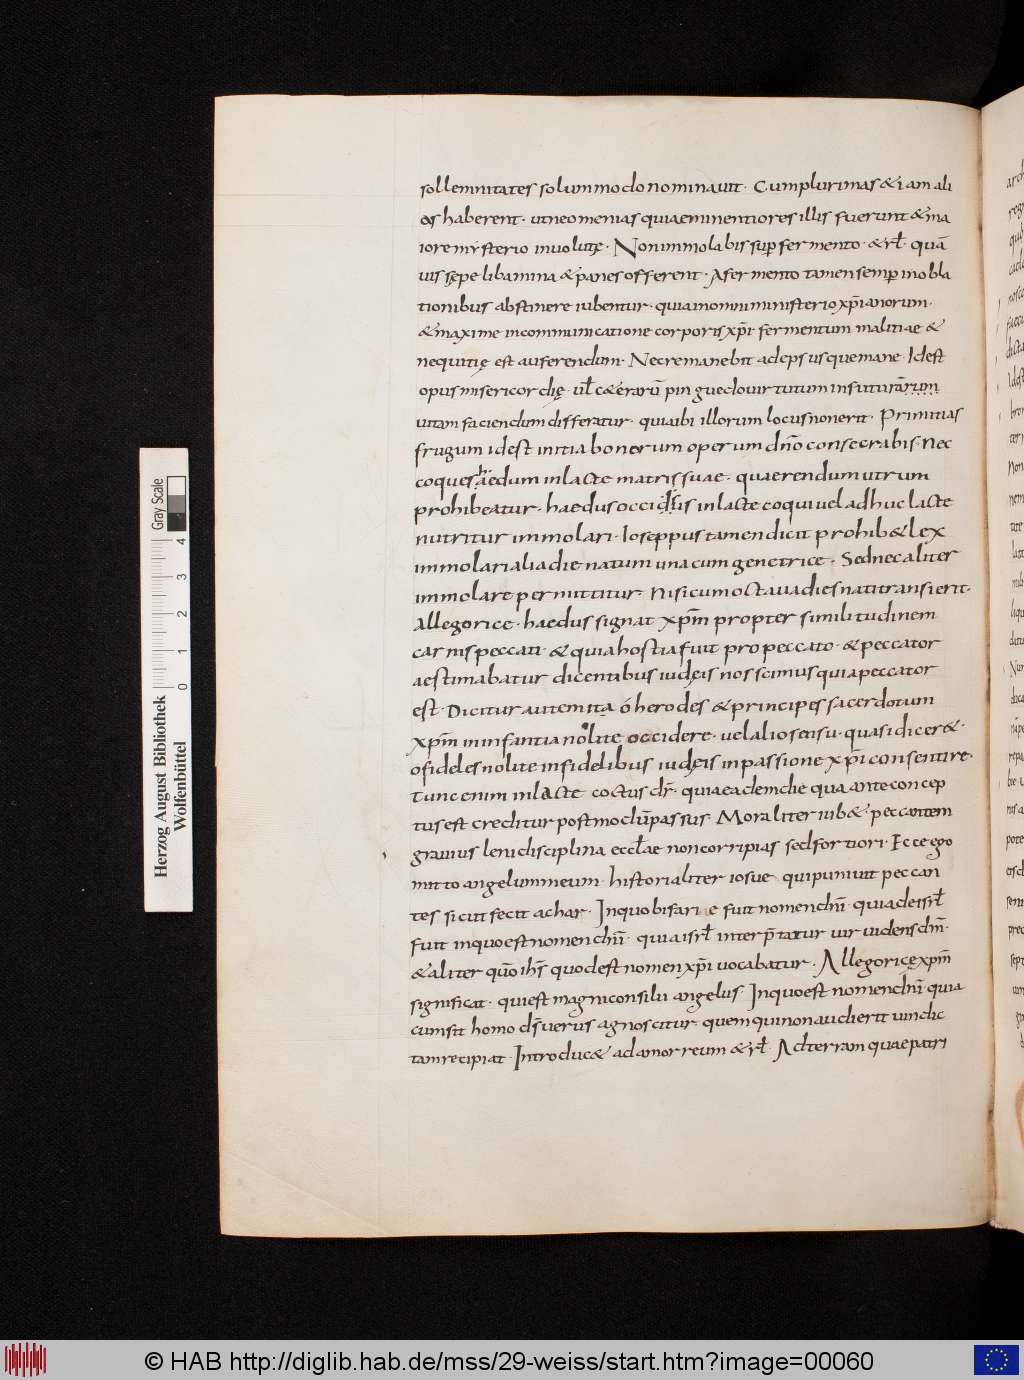 sollemnitates solummodo nominavit. Cumplurimas & iam ali
os haberent. ut neomenias quia eminentiores illis fuerunt & ma
iore mysterio involutę. Non immolabis sup̄ fermento. & rł. quā
vis sępe libamina & panes offerent. A fermento tamen semp̄ in obla
tionibus abstinere iubentur. quia in omni ministerio xp̄ianorum.
& maxime in communicatione corporis xp̄i fermentum malitiae &
nequitię est auferendum. Nec remanebit adeps usque mane. Idest
opus misericordię. vł c&erarū pinguedo virtutum in futurārum
vitam faciendum differatur. quia ibi illorum locus non erit. Primitias
frugum idest initia bonorum operum dn̄o consecrabis. Nec
coques haedum in lacte matris suae. quaerendum utrum
prohibeatur. haedus occidssis in lacte coqui vel adhuc lacte
nutritur immolari. Ioseppus tamen dicit prohib& lex
immolari alia die natum una cum genetrice. Sed nec aliter
immolare permittitur. Nisi cum octava dies nati transierit.
Allegorice. haedus signat xp̄m propter similitudinem
carnis peccati. & quia hostia fuit pro peccato. & peccator
aestimabatur dicentibus iudęis nos scimus quia peccator
est. Dicitur autem ita ó herodes & principes sacerdotum
xp̄m in infantia nolite occidere. vel alio sensu. quasi dicer&.
o fideles nolite infidelibus iudęis in passione xp̄i consentire.
Tunc enim in lacte coctus dr̄. quia eadem die qua ante concep
tus est creditur postmodū passus. Moraliter iub&. peccantem
gravius leni disciplina eccłae non corripias sed fortiori. Ecce ego
mitto angelum meum. historialiter iosue. qui punivit peccan
tes sicut fecit achar. In quo bifari e fuit nomen dn̄i. quia dei isrł
fuit in quo est nomen dn̄i. quia isrł interp̄tatur vir videns dm̄.
& aliter qūo ih̄s quod est nomen xp̄i vocabatur. Allegoricę xp̄m
significat. qui est magni consilii angelus. In quo est nomen dn̄i. quia
cum sit homo ds̄ verus agnoscitur. quem qui non audierit vindic
tam recipiat. Introduc& ad amorreum & rł. Ad terram quae patri
Herzog August Bibliothek
Wolfenbüttel
0 1 2 3 4
Gray Scale
© HAB http://diglib.hab.de/mss/29-weiss/start.htm?image=00060